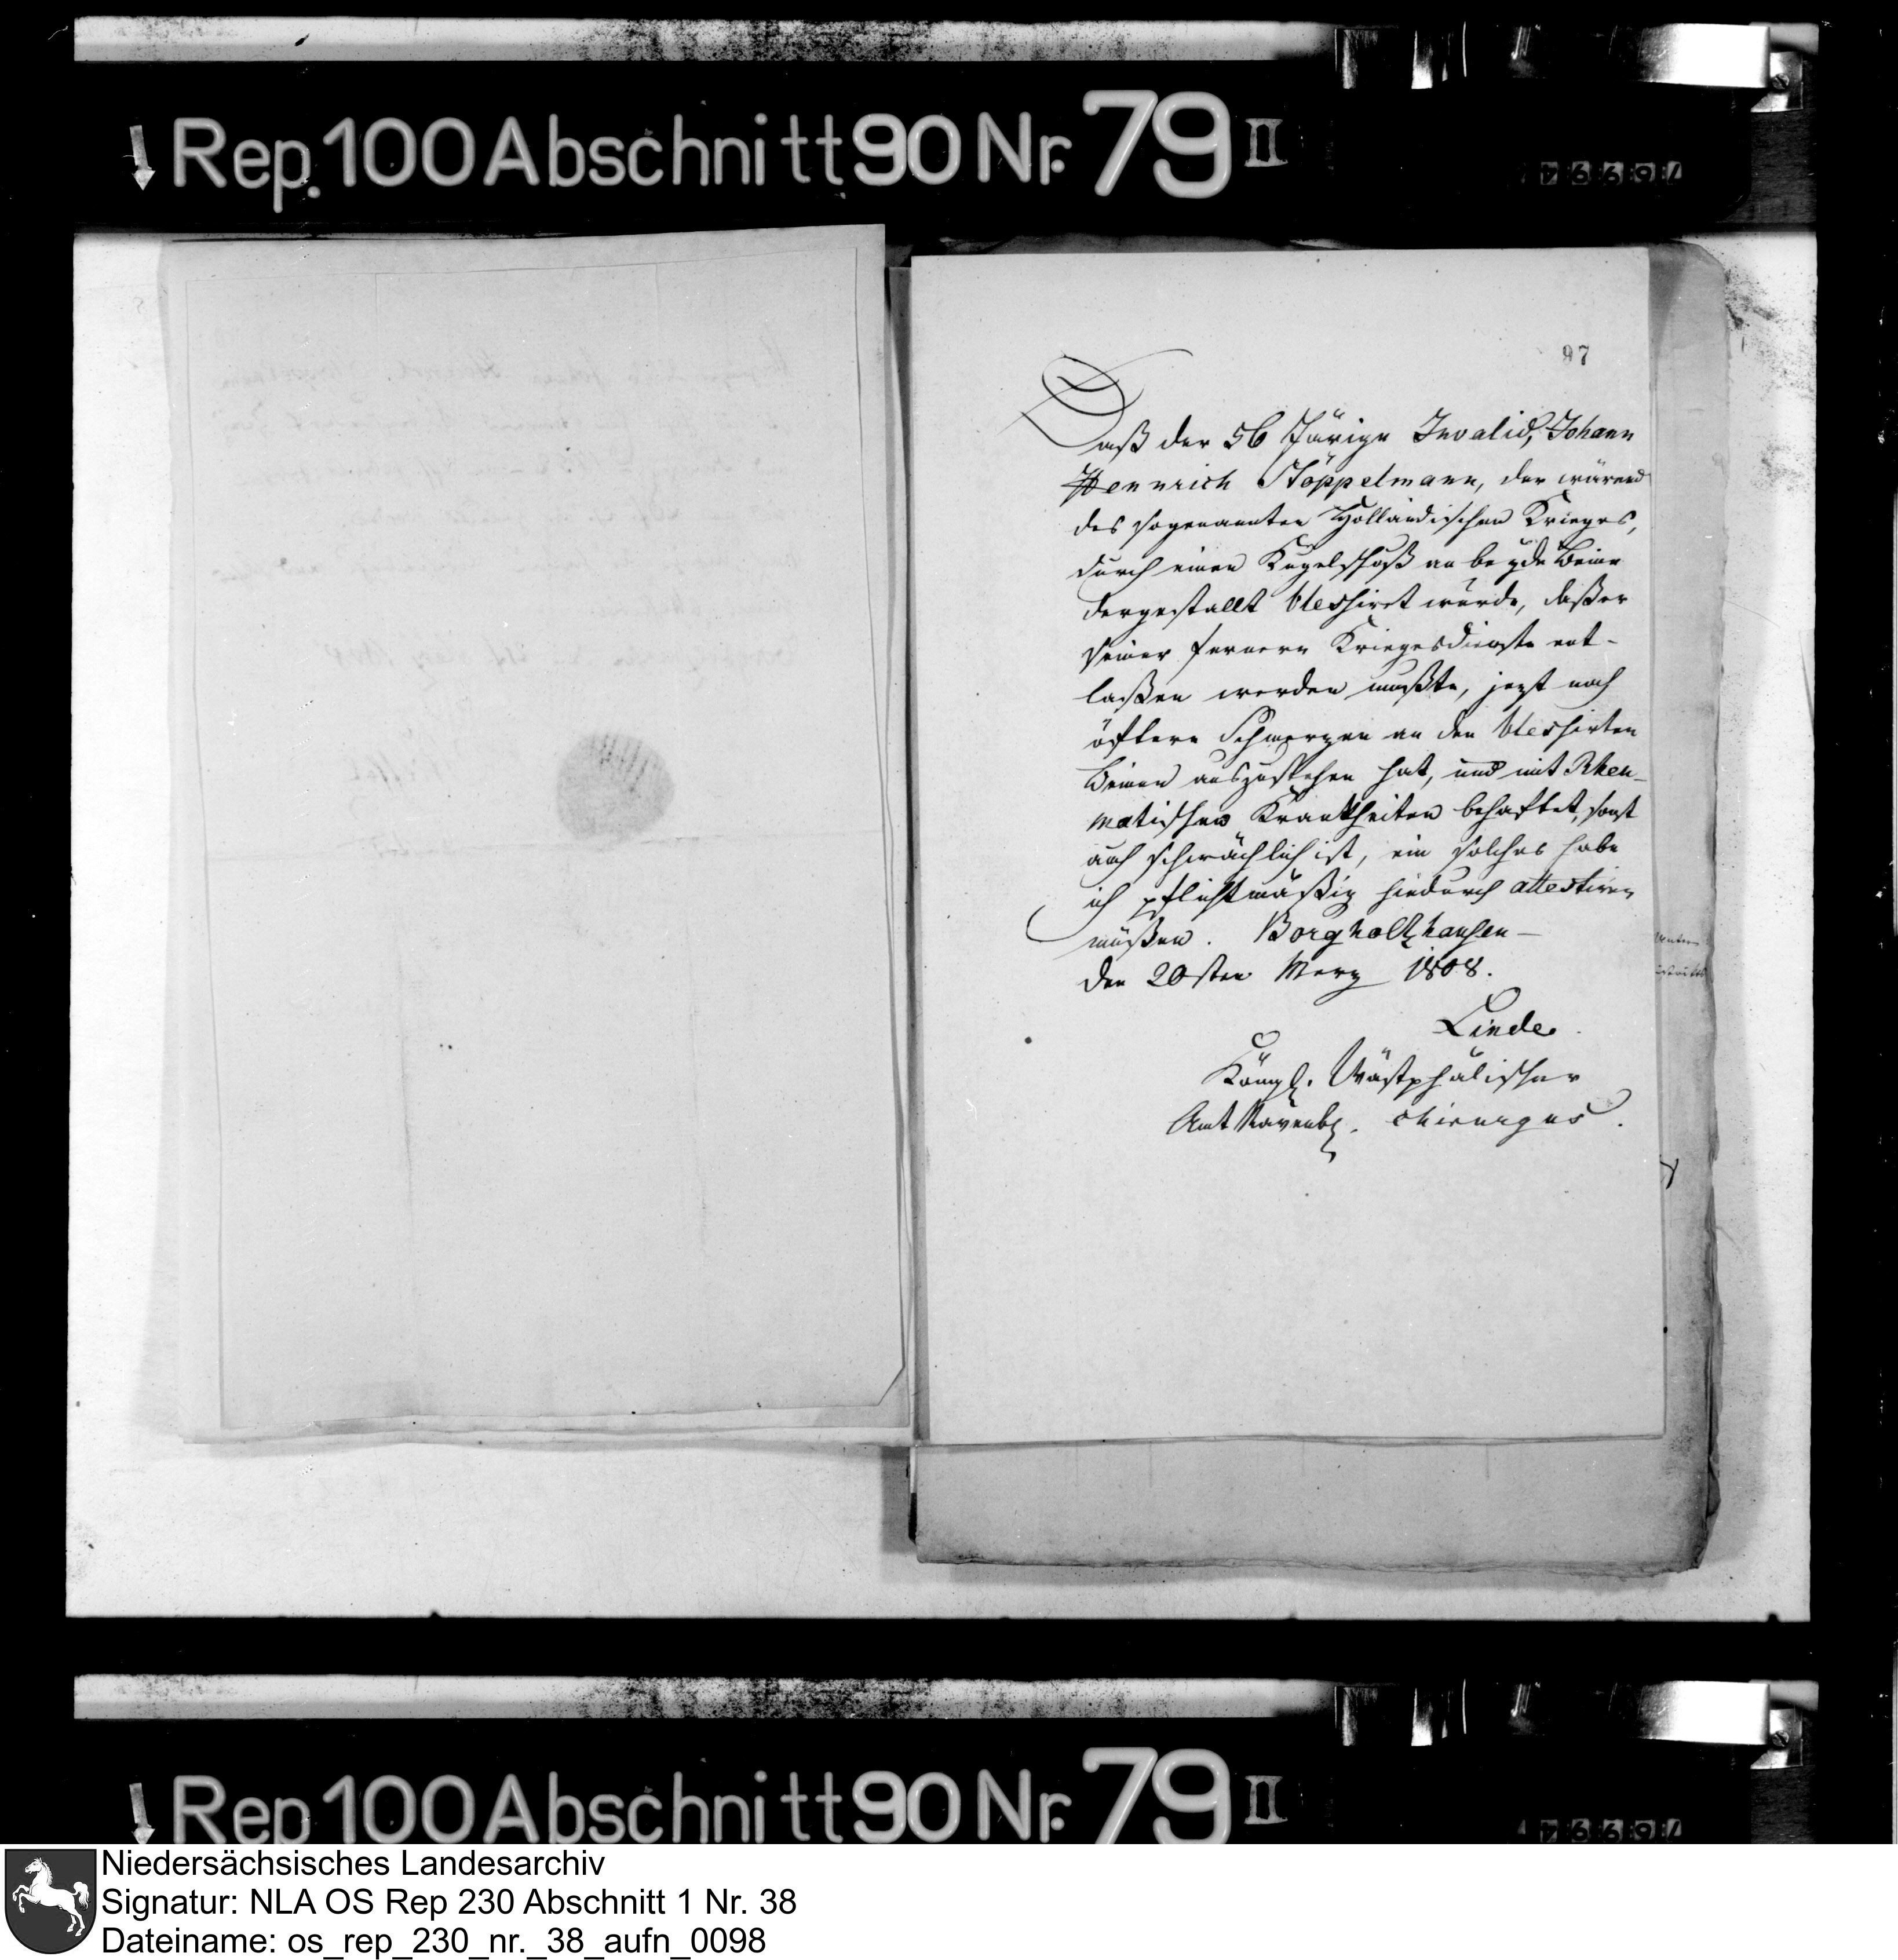 Rep. 100 Abschnitt 90 Nr. 79 II
97
Daß der 56 Järige Invalid, Johann
Hennrich Stöppelmann, der wärend
des sogenannten Holländischen Krieges,
durch einen Kugelschuß an beyde Beine
dergestallt blessiret wurde, daß er
seiner fernern Kriegesdienste ent-
laßen werden mußte, jezt noch
öftere Schmerzen an den blessirten
Beinen auszustehen hat, und mit Rheu-
matischen Krankheiten behaftet, sonst
auch schwächlich ist, ein solches habe
ich pflichtmäßig hiedurch attestiren
müßen. Borgholtzhausen-
den 20sten Merz 1808.
Linde.
Königl. Wästphälischer
Amt Ravensbg. Chirurgus.
Rep 100 Abschnitt 90 Nr. 79 II
Niedersächsisches Landesarchiv
Signatur: NLA OS Rep 230 Abschnitt 1 Nr. 38
Dateiname: os_rep_230_nr._38_aufn_0098